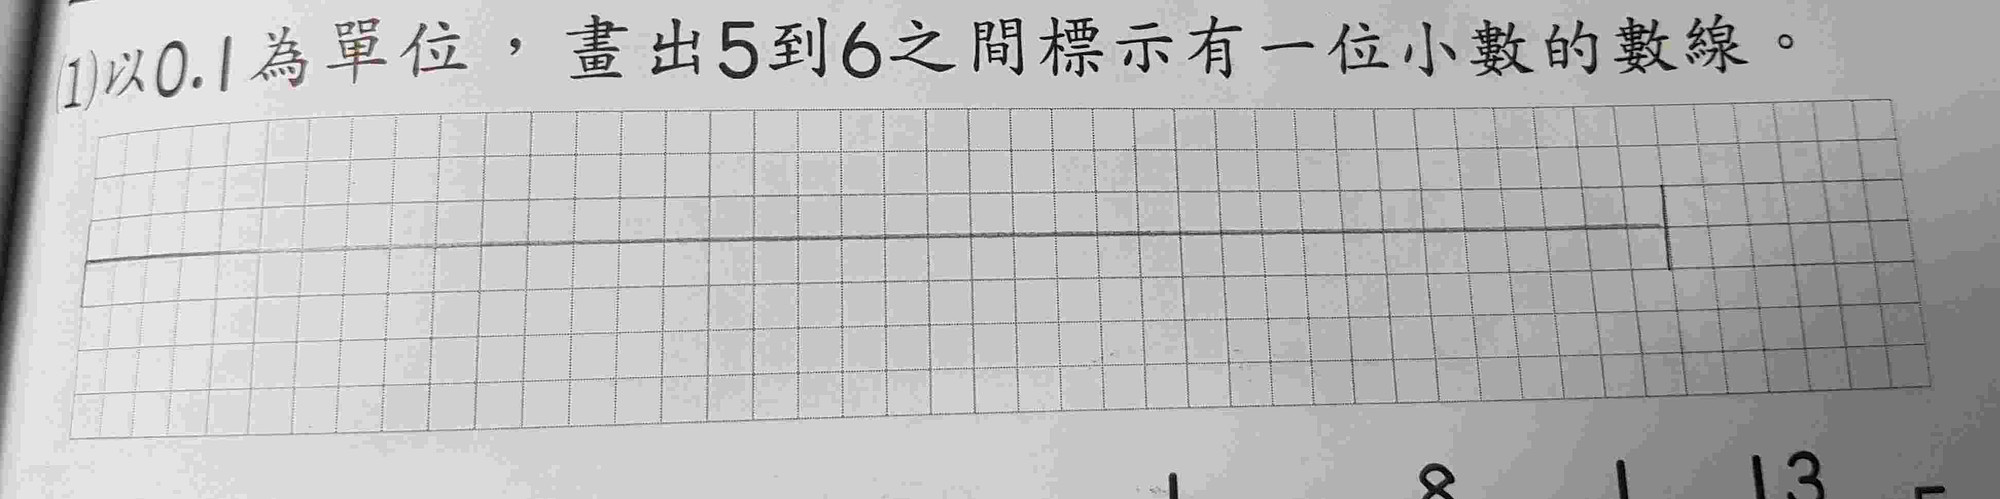 (1)以0.1為單位，畫出5到6之間標示有一位小數的數線。